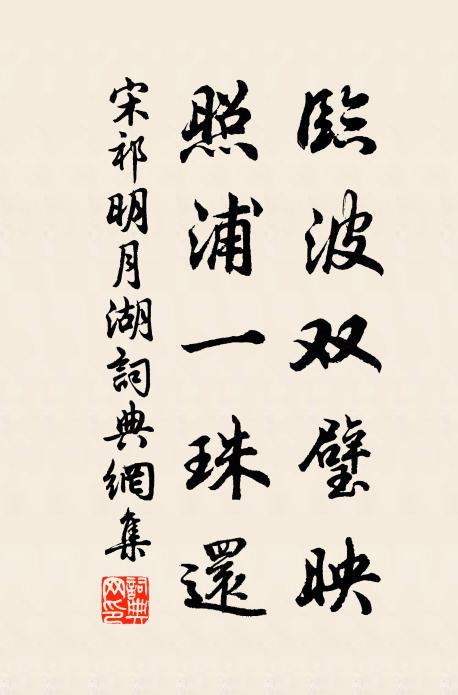 臨波双璧映
照浦一珠還
宋祁明月湖詞典網集
詞典网印